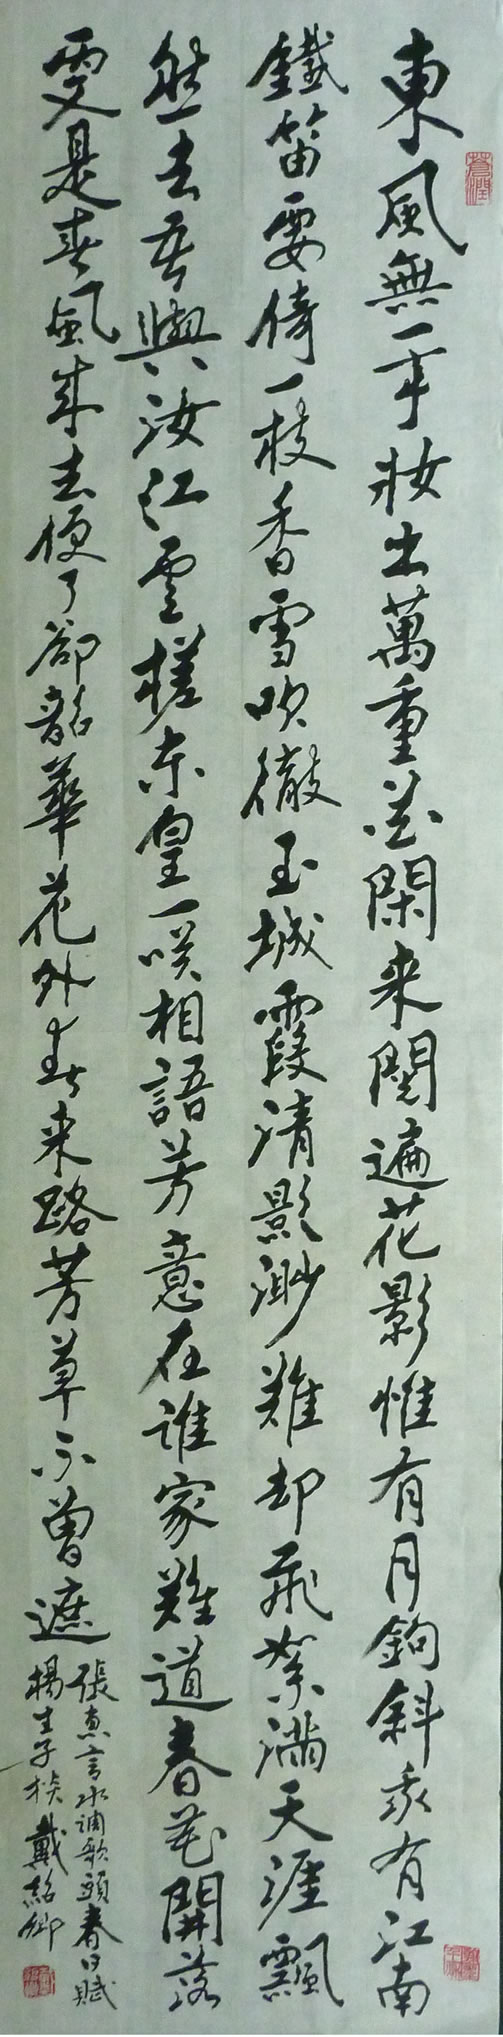 東風無一事妝出萬重花閑来閱遍花影惟有月鉤斜我有江南
鐵笛要倚一枝香雪吹徹玉城霞清影渺難却飛絮滿天涯飄
然去吾與汝江雲槎東皇一笑相語芳意在誰家難道春花開落
更是春風来去便了卻韶華花外春来路芳草不曾遮
張惠言水調歌頭春日賦
楊生子掞戴紹卿